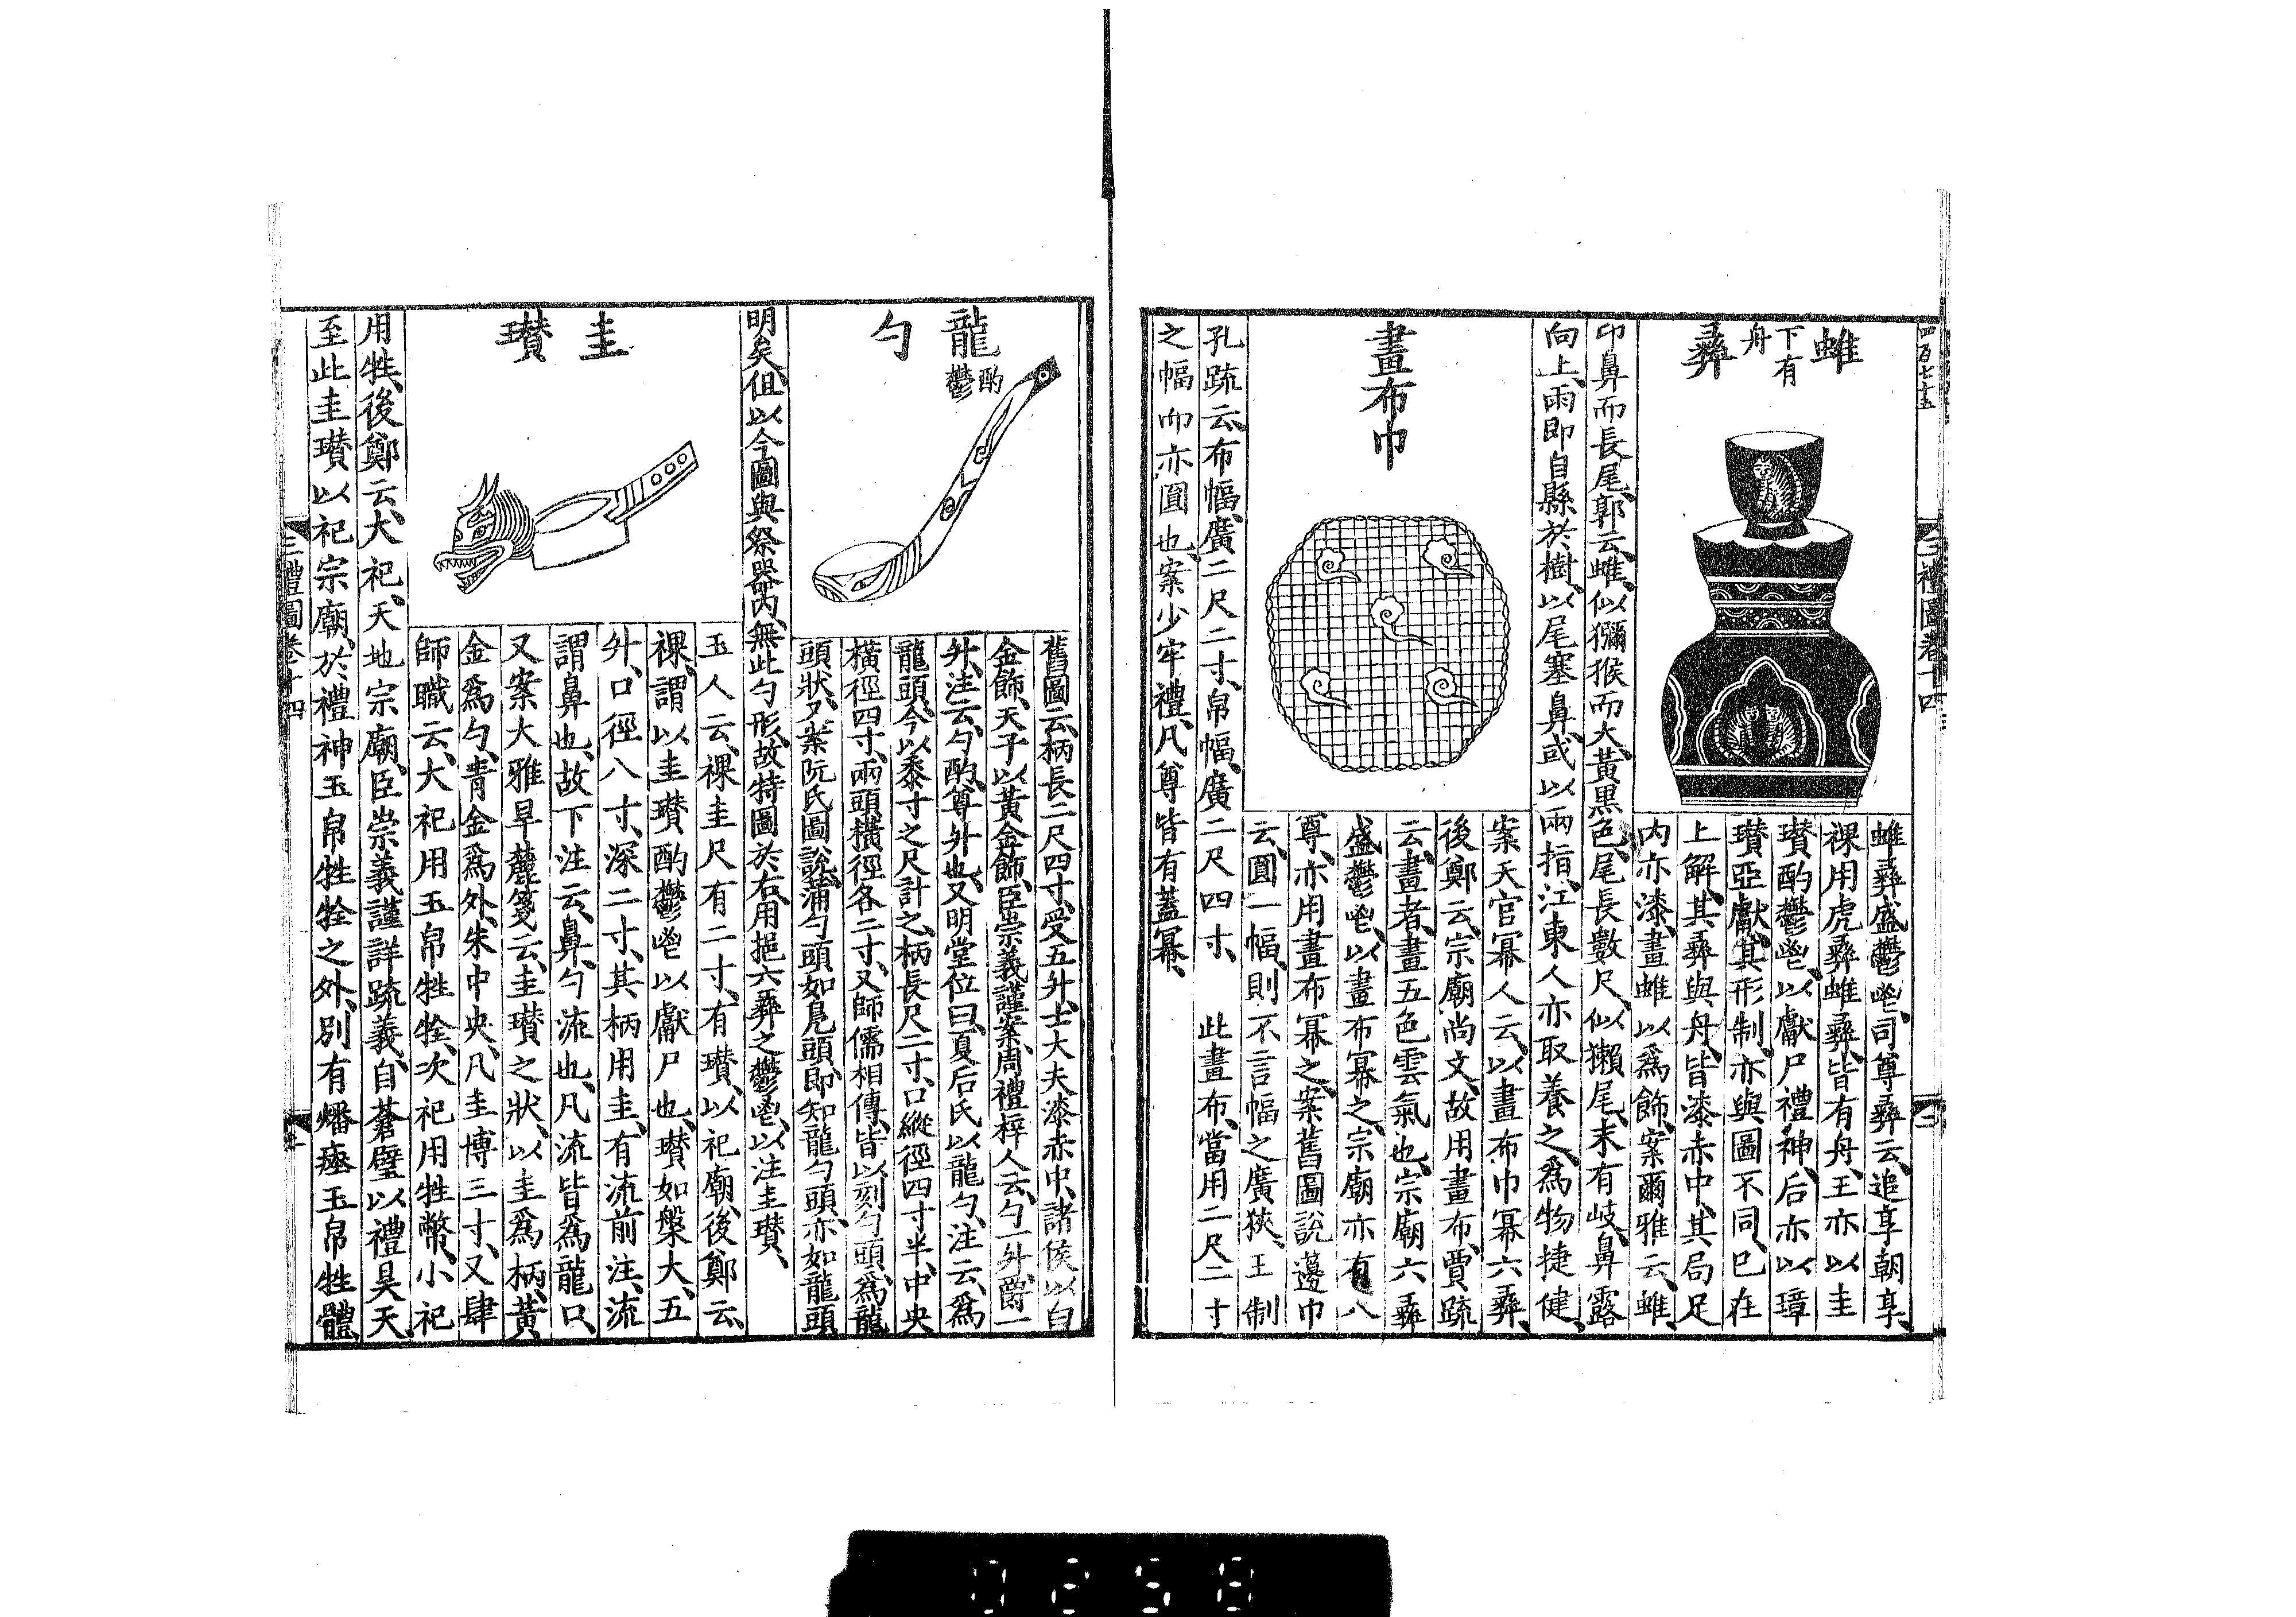 四百七十五
三禮圖卷十四
二
蜼彝
下有
舟
蜼彝盛鬱鬯司尊彝云追享朝享
祼用虎彝蜼彝皆有舟王亦以圭
瓚酌鬱鬯以獻尸禮神后亦以璋
瓚亞獻其形制亦與圖不同已在
上解其彝與舟皆漆赤中其局足
内亦漆畫蜼以爲飾案爾雅云蜼
卬鼻而長尾郭云蜼似獼猴而大黃黑色尾長數尺似獺尾末有岐鼻露
向上雨即自縣於樹以尾塞鼻或以兩指江東人亦取養之爲物捷健
畫布巾
案天官冪人云以畫布巾冪六彝
後鄭云宗廟尚文故用畫布賈疏
云畫者畫五色雲氣也宗廟六彝
盛鬱鬯以畫布冪之宗廟亦有八
尊亦用畫布冪之案舊圖說籩巾
云圓一幅則不言幅之廣狹王制
孔疏云布幅廣二尺二寸帛幅廣二尺四寸 此畫布當用二尺二寸
之幅而亦圓也案少牢禮凡尊皆有蓋冪
龍勺
酌
鬱
舊圖云柄長二尺四寸受五升士大夫漆赤中諸侯以白
金飾天子以黃金飾臣崇義謹案周禮梓人云勺一升爵一
升注云勺酌尊升也又明堂位曰夏后氏以龍勺注云爲
龍頭今以黍寸之尺計之柄長尺二寸口縱徑四寸半中央
橫徑四寸兩頭橫徑各二寸又師儒相傳皆以刻勺頭爲龍
頭狀又案阮氏圖說蒲勺頭如鳧頭即知龍勺頭亦如龍頭
明矣但以今圖與祭器內無此勺形故特圖於右用挹六彝之鬱鬯以注圭瓚
圭瓚
玉人云祼圭尺有二寸有瓚以祀廟後鄭云
祼謂以圭瓚酌鬱鬯以獻尸也瓚如槃大五
升口徑八寸深二寸其柄用圭有流前注流
謂鼻也故下注云鼻勺流也凡流皆爲龍口
又案大雅旱麓箋云圭瓚之狀以圭爲柄黃
金爲勺青金爲外朱中央凡圭博三寸又肆
師職云大祀用玉帛牲牷次祀用牲幣小祀
用牲後鄭云大祀天地宗廟臣崇義謹詳疏義自蒼璧以禮昊天
至此圭瓚以祀宗廟於禮神玉帛牲牷之外別有燔瘞玉帛牲體
三禮圖卷十四
0258